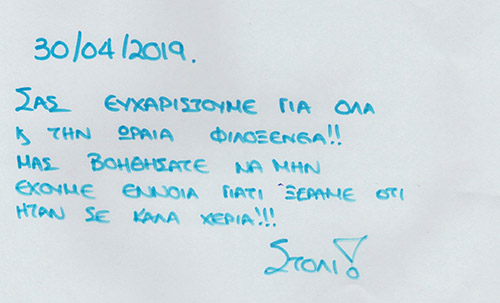 30/04/2019.
ΣΑΣ ΕΥΧΑΡΙΣΤΟΥΜΕ ΓΙΑ ΟΛΑ
Κ ΤΗΝ ΩΡΑΙΑ ΦΙΛΟΞΕΝΕΑ!!
ΜΑΣ ΒΟΗΘΗΣΑΤΕ ΝΑ ΜΗΝ
ΕΧΟΥΜΕ ΕΝΝΟΙΑ ΓΙΑΤΙ ΞΕΡΑΜΕ ΟΤΙ
ΗΤΑΝ SE ΚΑΛΑ ΧΕΡΙΑ!!!